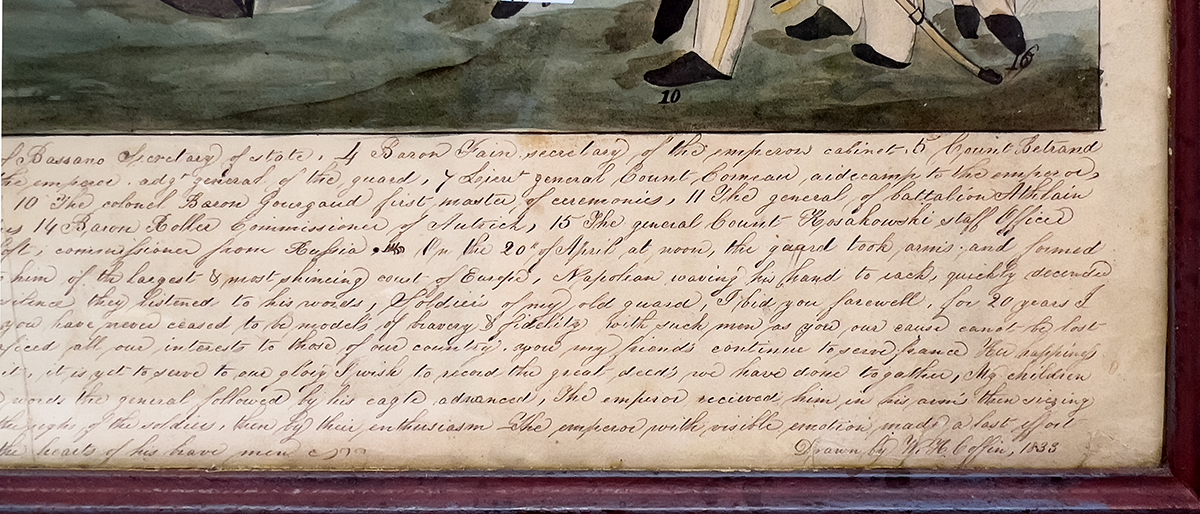 10
16
of Bassano Secretary of state, 4 Baron Fain secretary of the emperors cabinet. 5 Count Betrand
the emperor. adgt general of the guard, 7 Lieut general Count Corneau aidecamp to the emperor,
10 The colonel Baron Gourgaud first master of ceremonies, 11 The general of battalion Athlain
14 Baron Koller Commissioner of Autrich, 15 The general Count Kosakowski staff Officer
commissioner from Russia. On the 20th of April at noon, the guard took arms and formed
him of the largest & most shineing court of Europe, Napolean waving his hand to each, quickly decended
silence they listened to his words, Soldiers of my old guard I bid you farewell, for 20 years I
you have never ceased to be models of bravery & fidelity with such men as you our cause canot be lost
all our interests to those of our country, you my friends continue to serve france Her happiness
it, it is yet to serve to our glory I wish to record the great deeds we have done togather, My children
words the general followed by his eagle advanced, The emperor recieved him in his arms then siezing
the sighs of the soldiers, then by their enthusiasm The emperor with visible emotion made a last effort
the hearts of his brave men
Drawn by W. H. Coffin, 1833